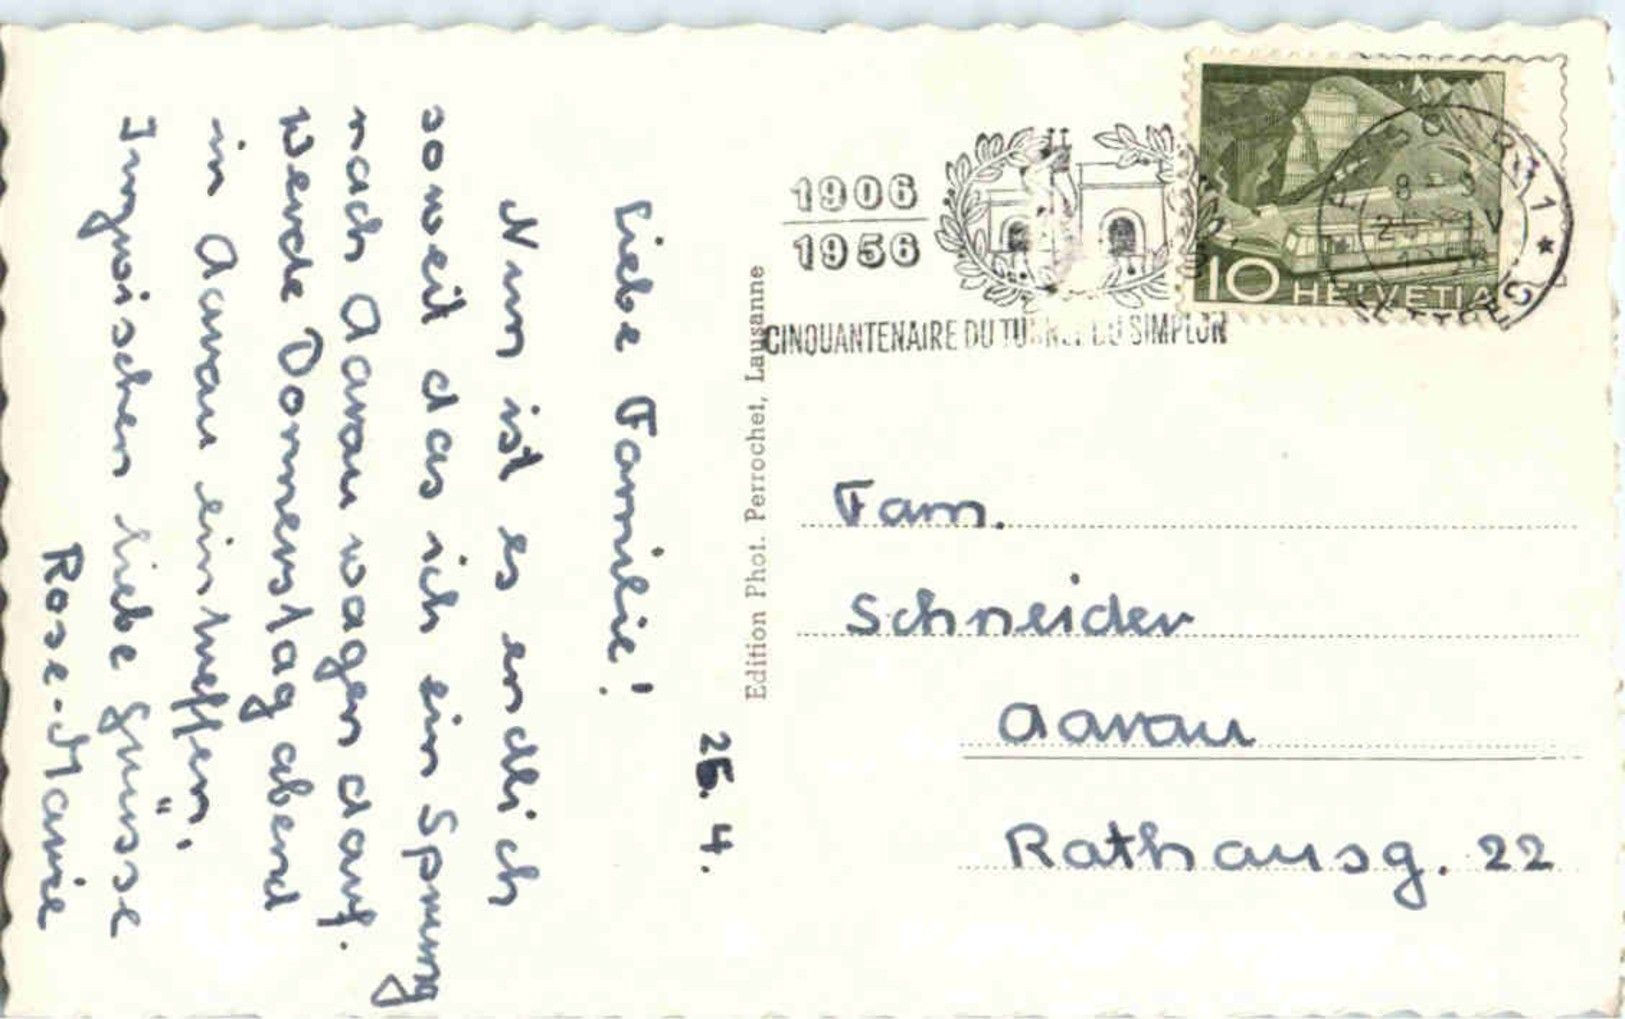 25.4.
Liebe Familie!
Nun ist es endlich
soweit das ich ein Sprung
nach Aarau wagen darf.
Werde Donnerstag abend
in Aarau eintreffen.
Inzwischen liebe Grüsse
Rose-Marie
Edition Phot. Perrochet, Lausanne
1906
1956
CINQUANTENAIRE DU TUNNEL DU SIMPLON
10 HELVETIA
1 *
LETTRES
Fam.
Schneider
Aarau
Rathausg. 22